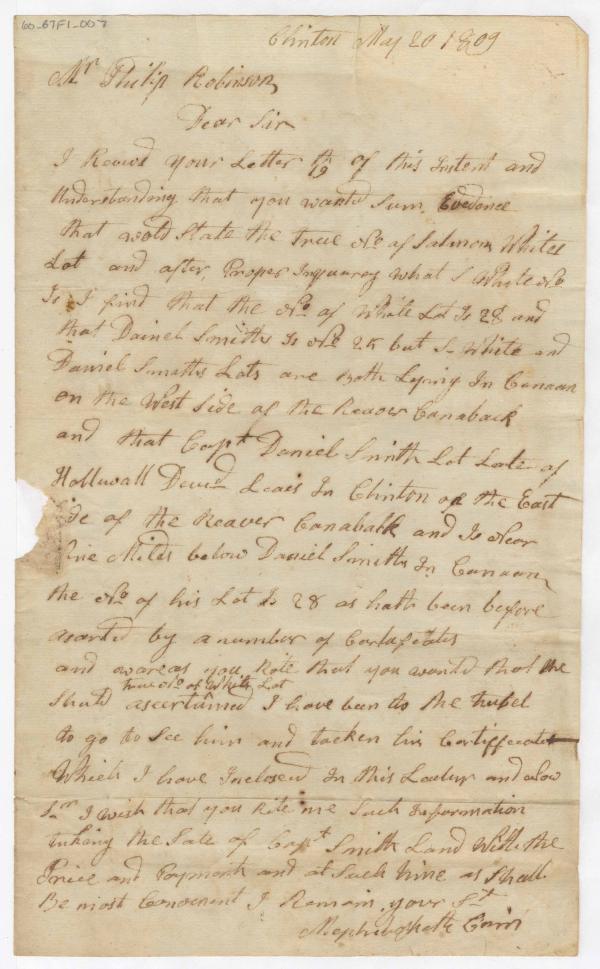 60-67F1-007
Clinton May 20 1809
Mr Philip Robinson
Dear Sir
I Receivd your Letter th 19 of this Instent and
Understanding that you wanted Sum Evedence
that wold State the true No of Salmon Whites
Lot and after Proper Inquarey what S White No
Is I find that the No of White Lot Is 28 and
that Dainel Smiths Is No 25 but S White and
Daniel Smiths Lots are Both Lying In Canaan
on the West Side of the Reaver Canaback
and that Capt Daniel Smith Lot Late of
Hollwall Decd Leaies In Clinton on the East
ide of the Reaver Canaback and Is Near
Miles below Daniel Smiths In Canaan
the No of his Lot Is 28 as hath been before
asarted by a number of Cartafcates
and owareas you Rote that you wanted that the
true No of White Lot
Shuld ascertained I have been to the trubel
to go to See him and tacken his Certiffecates
Which I have Inclosed In this Leatur and alow
Sr I wish that you Rite me Such Information
tuking the Sale of Capt Smith Land With the
Price and Payment and at Such time as Shall
Be most Convenent I Remain your St